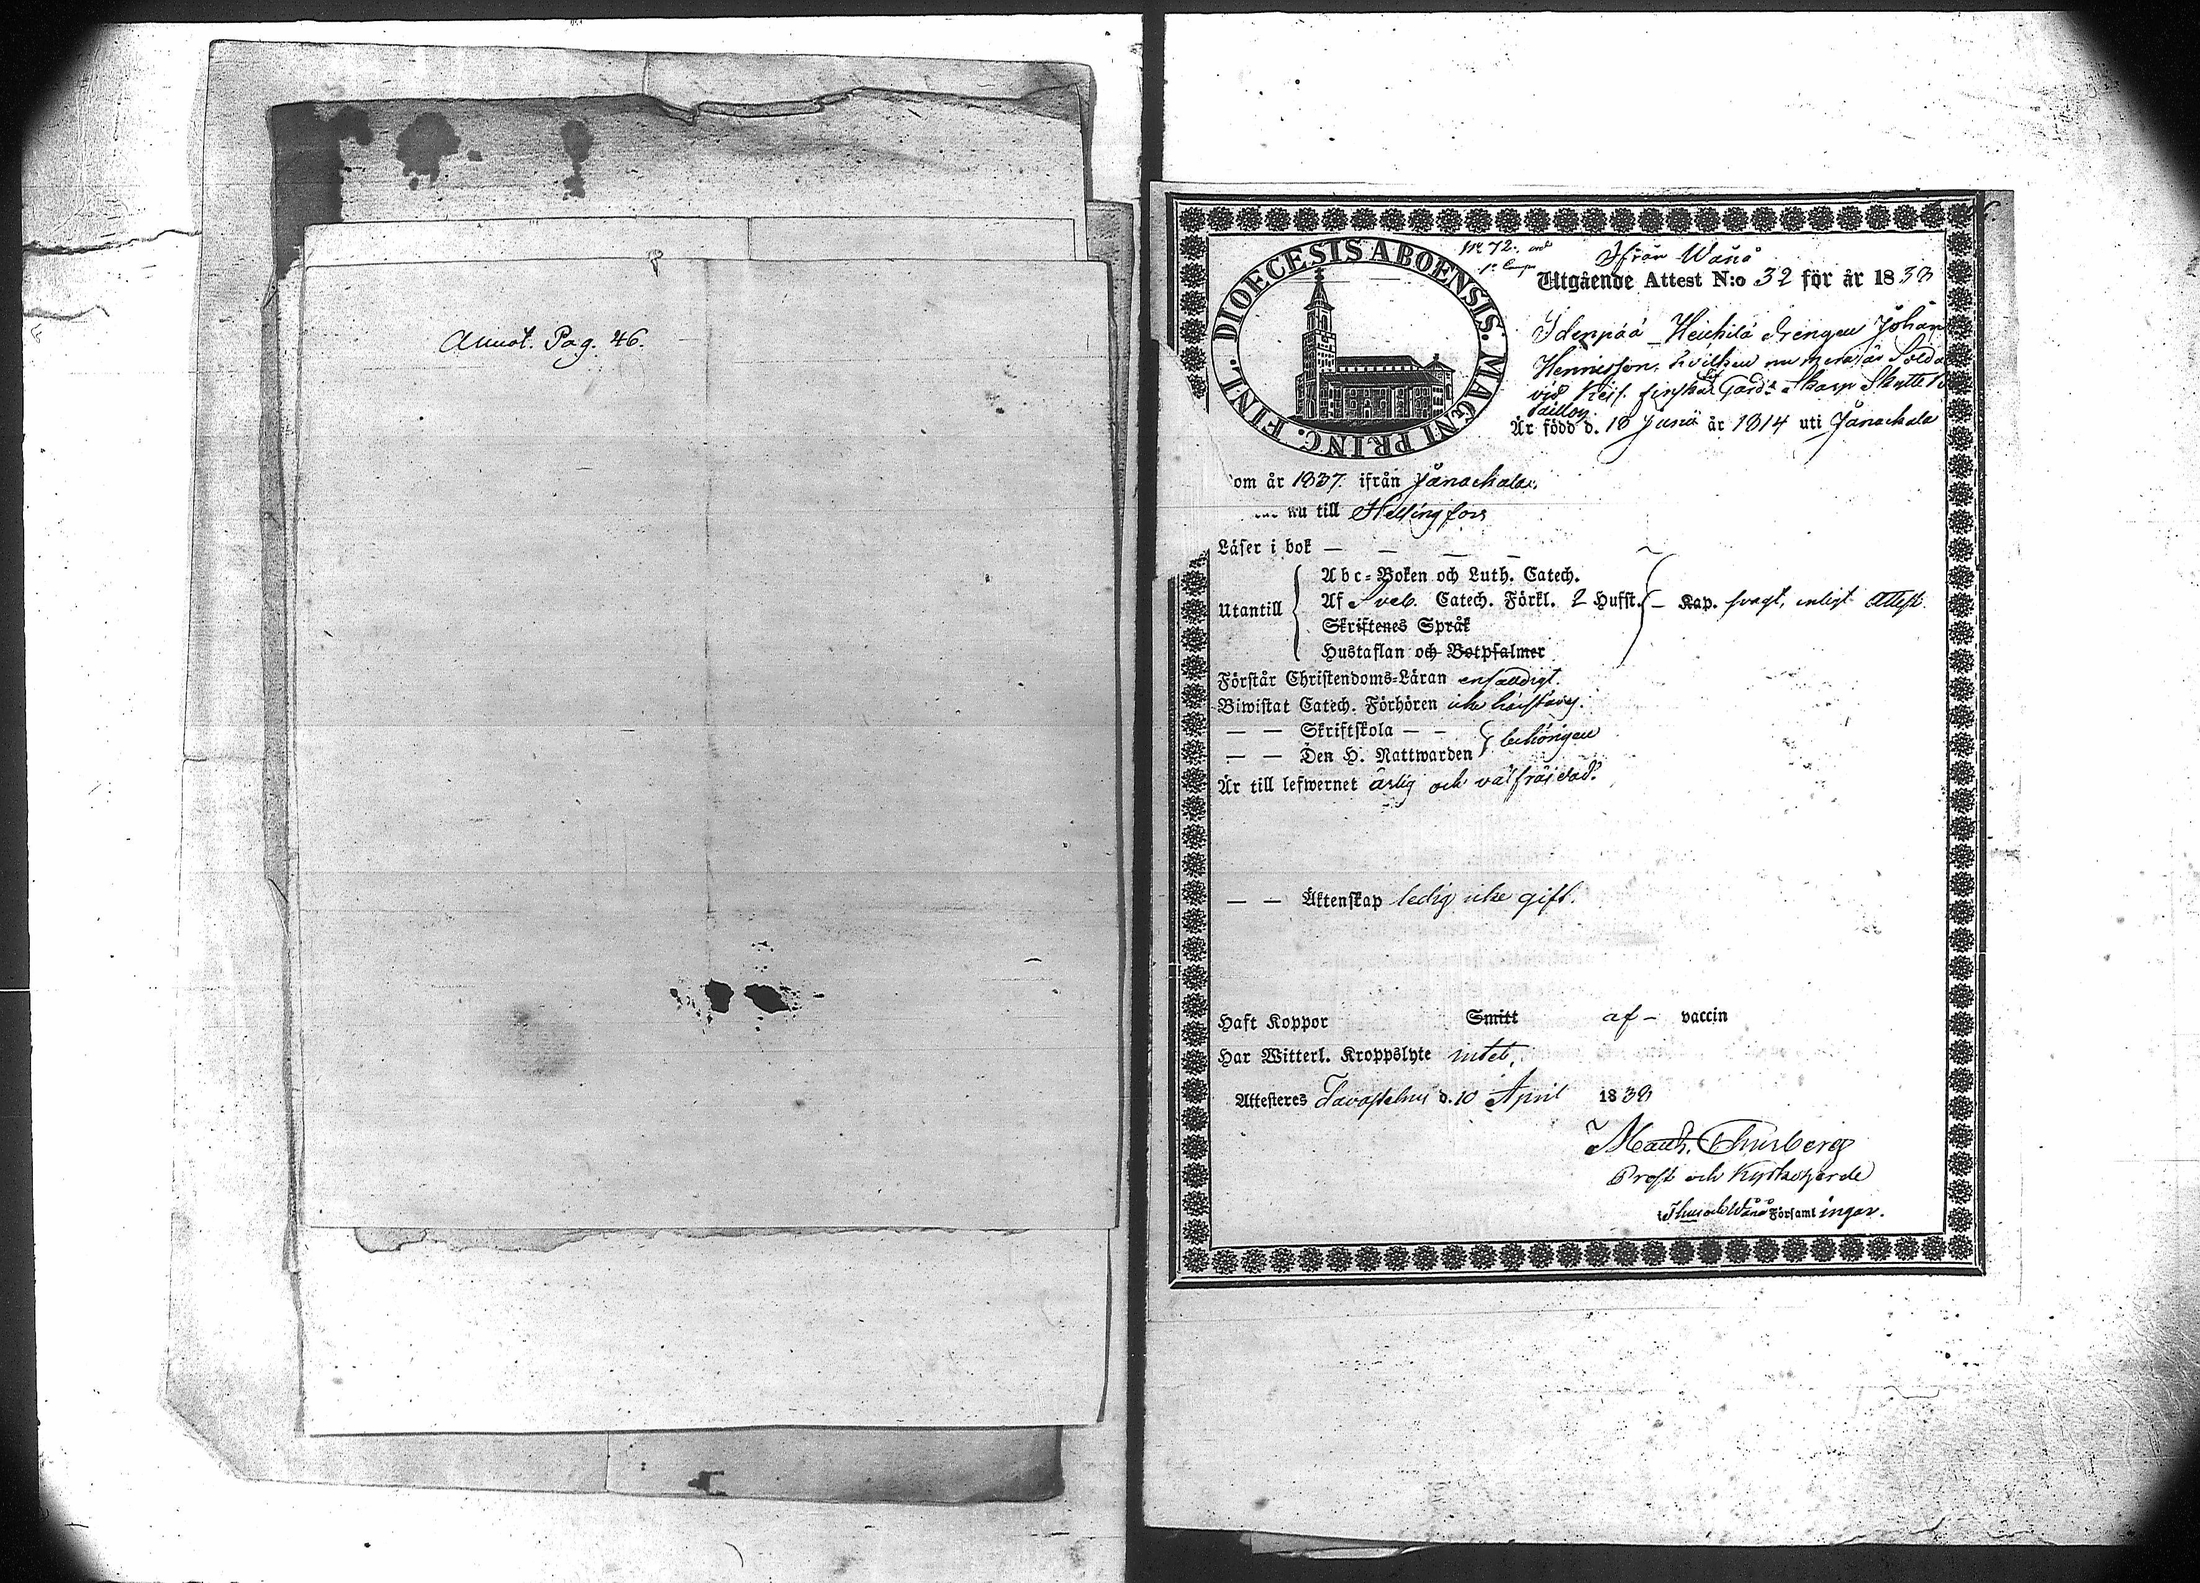 Annot. Pag. 46.
DIOECESIS ABOENSIS. MAGNI PRINC. FINL.
No 72.
Ifrån Wånå
Utgående Attest N:o 32 för år 1838
Idenpää Heickilä Drengen Johan
Hennisson, hvilken nu mera är Solda
vid Keis. finska Gardes Skarp Skytte B
Är född d. 18 Junii år 1814 uti Janackala
om år 1837. ifrån Janackala.
nu till Helsingfors
Läser i bok — — — —
Abc-Boken och Luth. Catech.
Utantill Af Sveb. Catech. Förkl. 2 Hufst. — Kap. svagt, enligt Attest.
Skriftenes Språk
Hustaflan och Botpsalmer
Förstår Christendoms-Läran enfaldigt.
Biwistat Catech. Förhören icke härstädes.
— — Skriftskola — —
— — Den H. Nattwarden behörigen
Är till lefwernet ärlig och välfräjdad.
— — Äktenskap ledig icke gift.
Haft Koppor Smitt af — vaccin
Har Witterl. Kroppslyte intet.
Attesteres Tavastehus d. 10 April 1838
Thurberg
Prost och Kyrkoherde
i Thus och Wånå Församlingar.